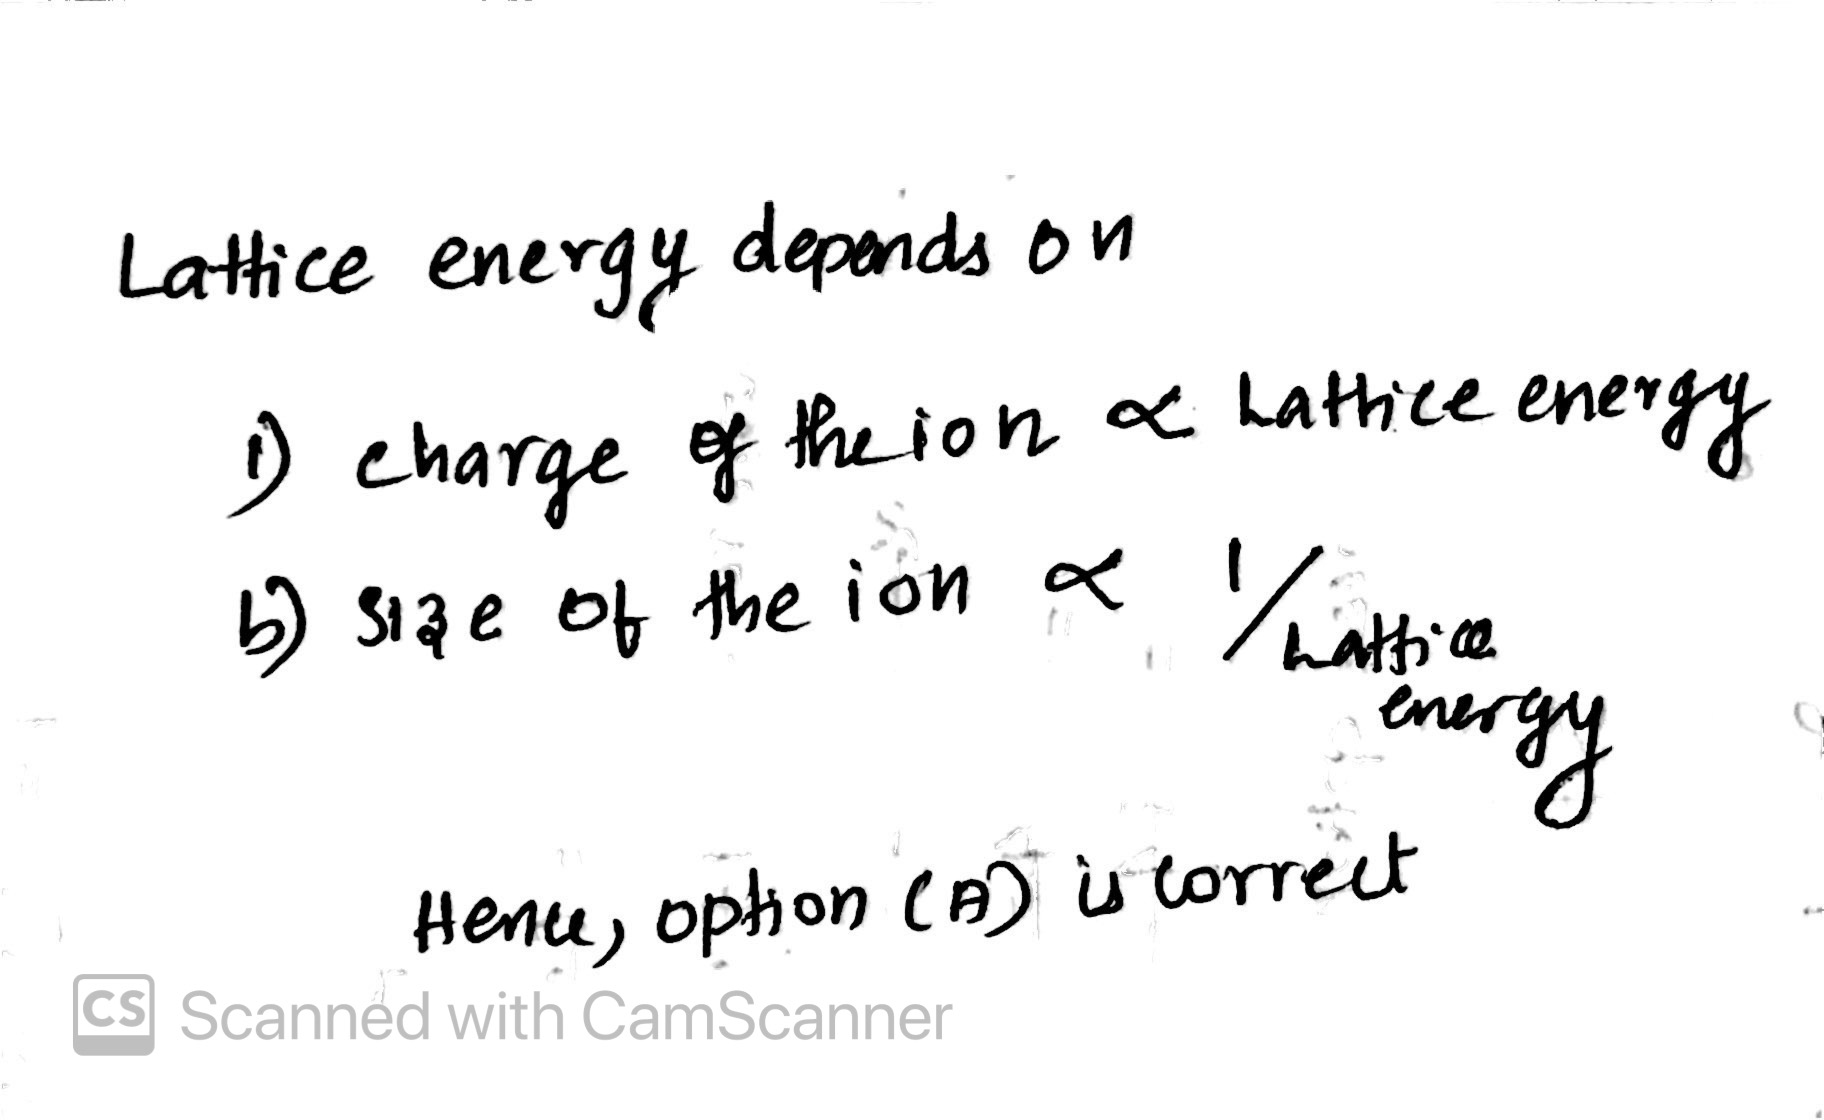 Lattice energy depends on
1) charge of the ion ∝ Lattice energy
b) size of the ion ∝ 1/Lattice
energy
Hence, option (A) is correct
CS Scanned with CamScanner